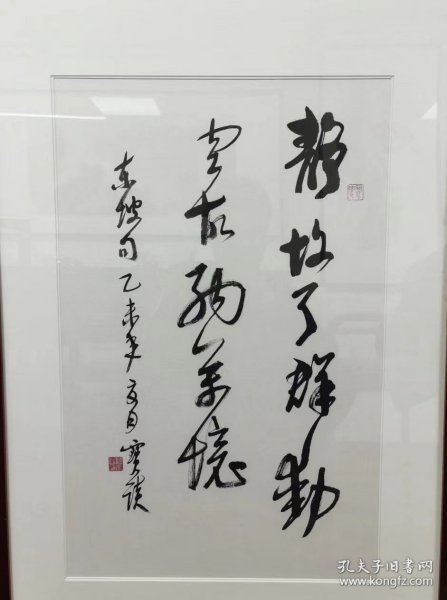 静故了群動
空故納萬境
東坡句乙未年夏日寶謨
孔夫子旧书网
www.kongfz.com